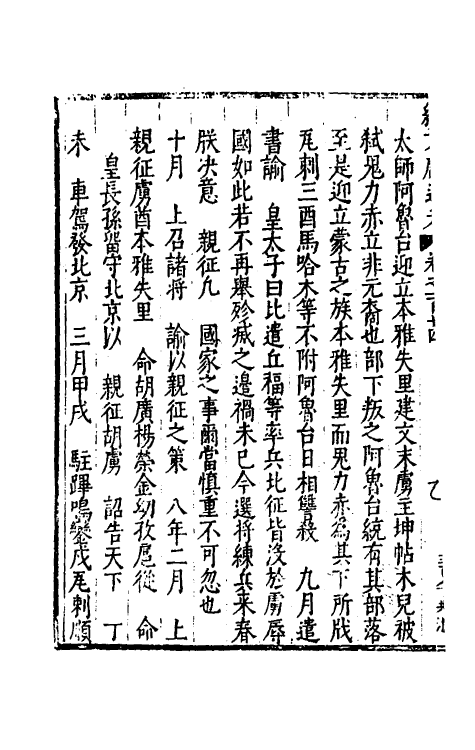 太師阿魯台迎立本雅失里建文末虜主坤帖木兒被
弒鬼力赤立非元裔也部下叛之阿魯台統有其部落
至是迎立蒙古之族本雅失里而鬼力赤爲其下所戕
瓦剌三酋馬哈木等不附阿魯台日相讐殺　九月遣
書諭　皇太子曰比遣丘福等率兵北征皆沒於虜辱
國如此若不再舉殄滅之邊禍未已今選將練兵來春
朕决意　親征凡　國家之事爾當慎重不可忽也
十月　上召諸將　諭以親征之策　八年二月　上
親征虜酋本雅失里　命胡廣楊榮金幼孜扈從　命
皇長孫留守北京以　親征胡虜　詔告天下　丁
未　車駕發北京　三月甲戌　駐蹕鳴鑾戍瓦剌順